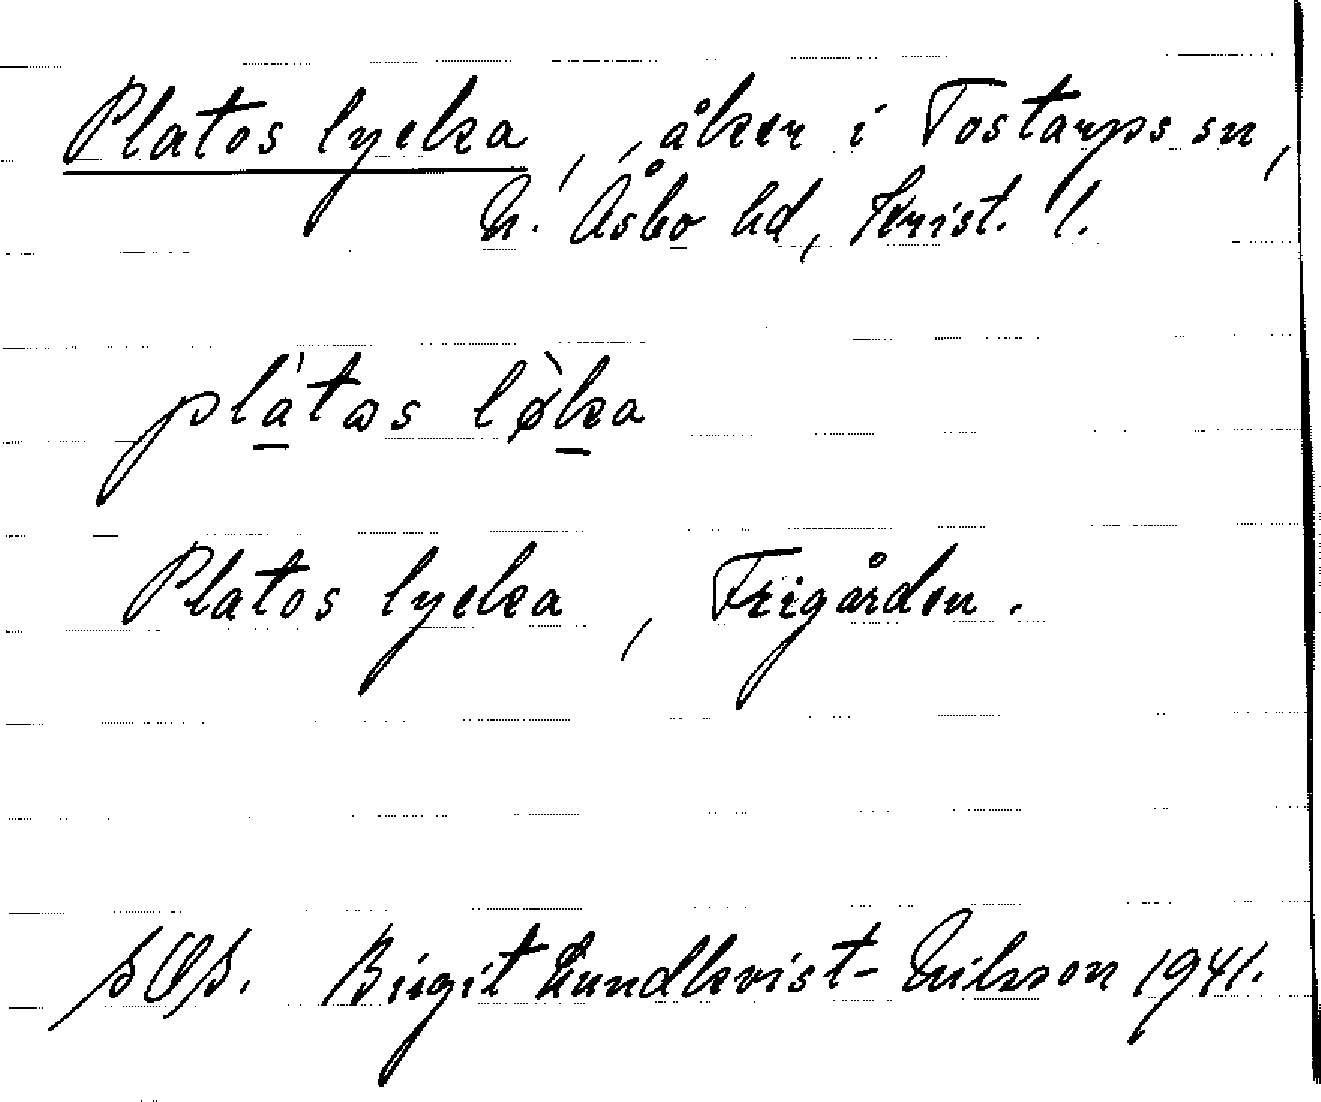 Platos lycka, åker i Tostarps sn,
N. Åsbo hd, Krist. l.
plàtos lø̀ka
Platos lycka, Frigården.
Birgit Lundkvist-Nilsson 1941.